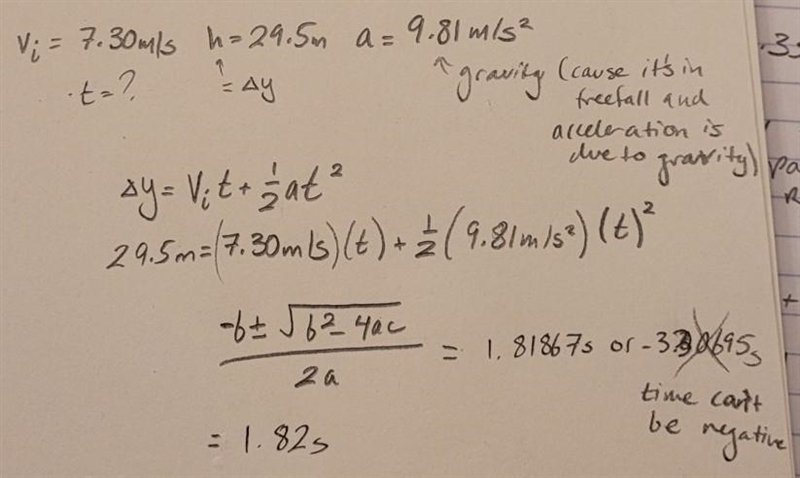 Vi = 7.30m/s h = 29.5m a = 9.81 m/s²
· t = ? ↑ = Δy ↑ gravity (cause it's in
freefall and
acceleration is
due to gravity)
Δy = Vi t + 1/2 at²
29.5m = (7.30m/s)(t) + 1/2 (9.81m/s²) (t)²
-b ± √b² - 4ac / 2a = 1.81867s or
time can't
be negative
= 1.82s